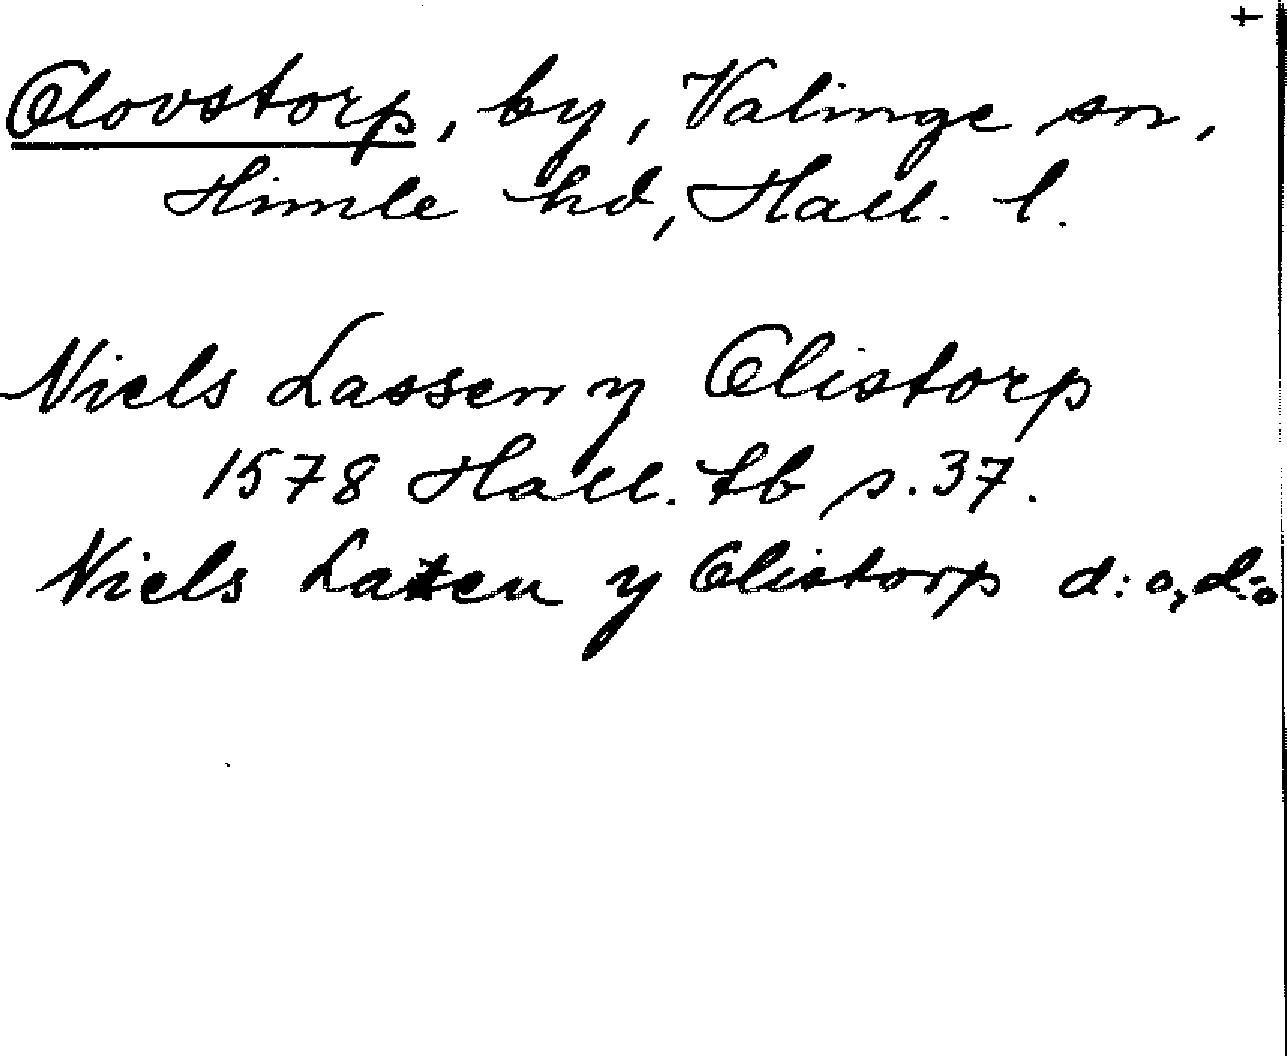 +
Olovstorp, by, Valinge sn,
Himle hd, Hall. l.
Niels Lassen y Olistorp
1578 Hall. tb s. 37.
Niels Latzen y Olistorp d:o, d:o